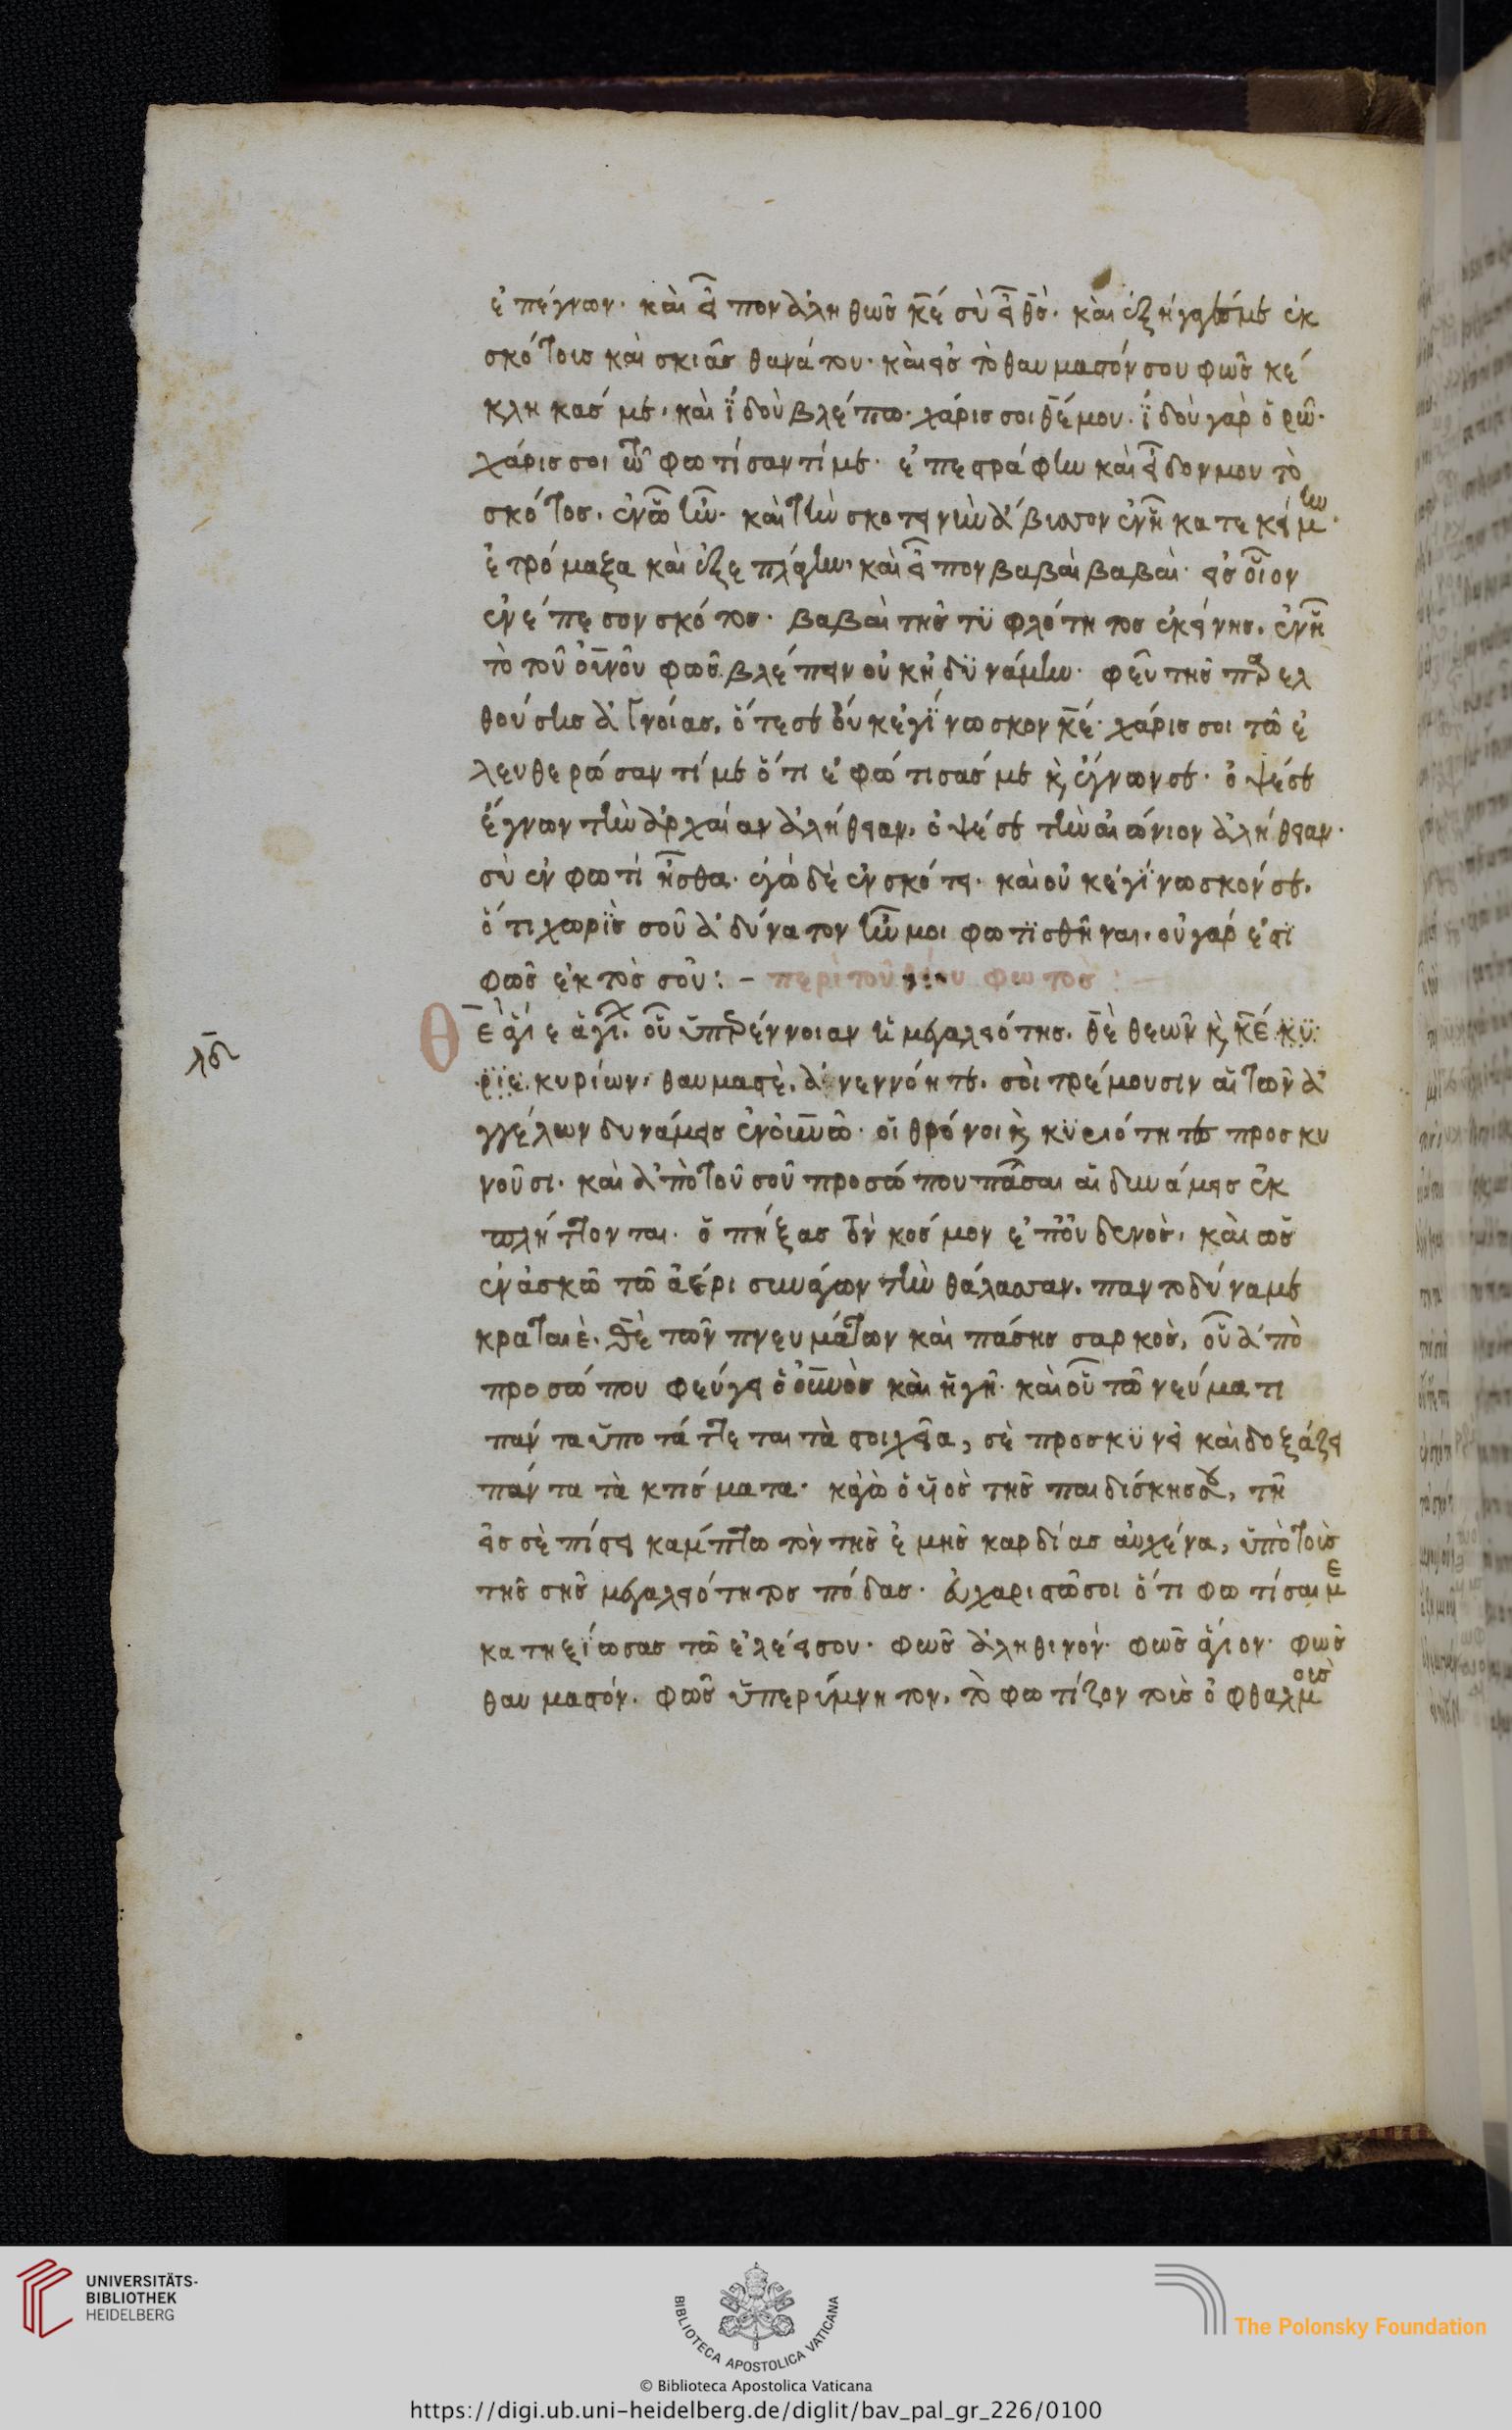 ἐπέγνων· καὶ εἶπον ἀληθῶς κ̅έ σὺ εἶ θ̅ς̀· καὶ ἐξήγαγές με ἐκ
σκότους καὶ σκιᾶς θανάτου· καὶ εἰς τὸ θαυμαστόν σου φῶς κέ
κληκάς με· καὶ ἰ̈δοὺ βλέπω· χάρις σοι θ̅έ μου· ἰ̈δοὺ γὰρ ὁρῶ·
χάρις σοι τῶ φωτίσαντί με· ἐπεστράφην καὶ εἶδον μου τὸ
σκότος, ἐν ὧ ἦν· καὶ τὴν σκοτεινὴν ἄβυσσον ἐν ἧ κατεκείμην·
ἐτρόμαξα καὶ ἐξεπλάγην, καὶ εἶπον βαβαὶ βαβαὶ· εἰς οἷον
ἐνέπεσον σκότος· βαβαὶ τῆς τϋφλότητος ἐκείνης, ἐν ἧ
τὸ τοῦ ο̅υ̅ν̅οῦ φῶς βλέπειν οὐκ ἠδϋνάμην· φεῦ τῆς παρελ
θούσης ἀγνοίας, ὅτε σε οὐκ ἐγί̈νωσκον κ̅έ· χάρις σοι τῶ ἐ
λευθερώσαντί με ὅτι ἐφώτισάς με κ, ἔγνων σε· ὀψέ σε
ἔγνων τὴν ἀρχαίαν ἀλήθειαν, ὀψέ σε τὴν αἰώνιον ἀλήθειαν·
σὺ ἐν φωτὶ ἦσθα· ἐγὼ δὲ ἐν σκότει· καὶ οὐκ ἐγί̈νωσκόν σε,
ὅτι χωρὶ̈ς σοῦ ἀδύνατον ἦν μοι φωτϊσθῆναι, οὐ γάρ ἐστϊ
φῶς ἐκτὸς σοῦ: – περὶ τοῦ θείου φωτὸς: –
λ̅δ̅ Θ̅ὲ ἅγιε ἁγίων, οὗ ὑπὲρ ἔννοιαν ἡ μεγαλειότης, θ̅ὲ θεῶν κ, κ̅έ κϋ
ρϊε κυρίων, θαυμαστὲ, ἀνεννόητε, σοὶ τρέμουσιν αἱ τῶν ἀ
γγέλων δυνάμεις ἐν ο̅υ̅ν̅ῶ· οἱ θρόνοι κ, κϋριότητες προσκυ
νοῦσι· καὶ ἀπὸ τοῦ σοῦ προσώπου πᾶσαι αἱ δυνάμεις ἐκ
πλήττονται· ὁ πήξας τὸν κόσμον ἐπ' οὐδενὸς, καὶ ὡς
ἐν ἀσκῶ τῶ ἀέρι συνάγων τὴν θάλασσαν, παντοδύναμε
κραταιὲ, θ̅ὲ τῶν πνευμάτων καὶ πάσης σαρκὸς, οὗ ἀπὸ
προσώπου φεύγει ὁ ο̅υ̅ν̅ὸς καὶ ἡ γῆ· καὶ οὗ τῶ νεύματι
πάντα ὑποτάττεται τὰ στοιχεῖα, σὲ προσκϋνεῖ καὶ δοξάζει
πάντα τὰ κτίσματα· κἀγὼ ὁ υἱὸς τῆς παιδίσκης σου, τῆ
εἰς σὲ πίστει κάμπτω τὸν τῆς ἐμῆς καρδίας αὐχένα, ὑπὸ τοὺς
τῆς σῆς μεγαλειότητος πόδας· εὐχαριστῶ σοι ὅτι φωτίσαι με
κατηξί̈ωσας τῶ ἐλέει σου· φῶς ἀληθινόν· φῶς ἅγιον· φῶς
θαυμαστόν· φῶς ὑπερύμνητον, τὸ φωτίζον τοὺς ὀφθαλμοὺς
UNIVERSITÄTS-
BIBLIOTHEK
HEIDELBERG
BIBLIOTECA APOSTOLICA VATICANA
The Polonsky Foundation
© Biblioteca Apostolica Vaticana
https://digi.ub.uni-heidelberg.de/diglit/bav_pal_gr_226/0100